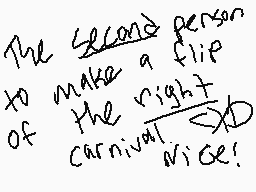 The second person
to make a flip
of the right
carnival XD
Nice!